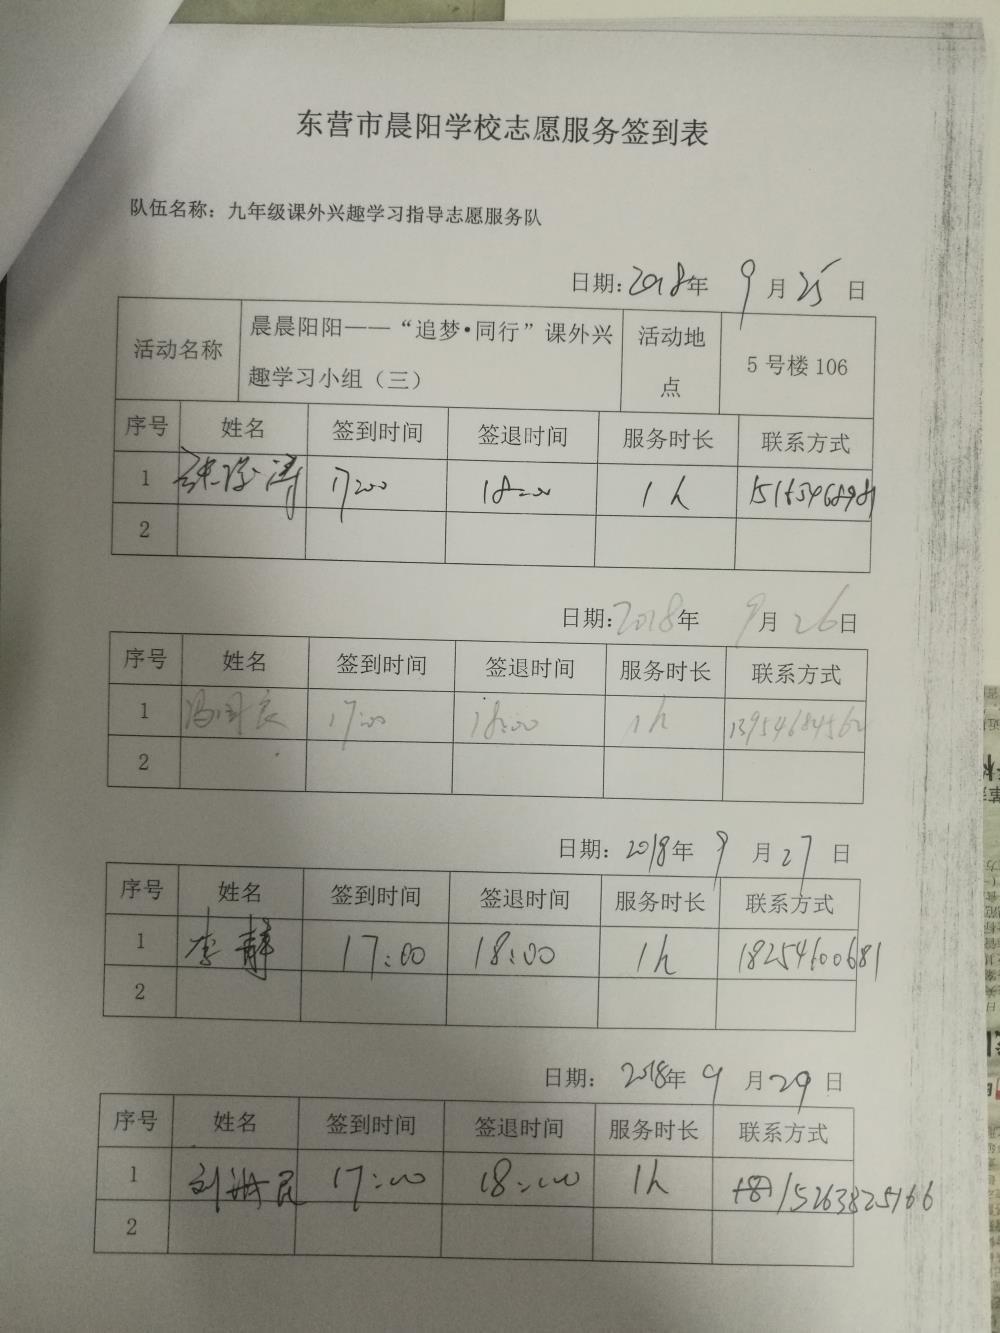 东营市晨阳学校志愿服务签到表
队伍名称：九年级课外兴趣学习指导志愿服务队
日期：2018年 9月 25日
活动名称 晨晨阳阳——“追梦•同行”课外兴趣学习小组（三） 活动地点 5号楼106
序号 姓名 签到时间 签退时间 服务时长 联系方式
1 17:00 18:00 1h
2
日期：2018年 9月 26日
序号 姓名 签到时间 签退时间 服务时长 联系方式
1 冯国良 17:00 18:00 1h 13954684562
2
日期：2018年 9月 27日
序号 姓名 签到时间 签退时间 服务时长 联系方式
1 李静 17:00 18:00 1h 18254600681
2
日期：2018年 9月 29日
序号 姓名 签到时间 签退时间 服务时长 联系方式
1 17:00 18:00 1h 15263825166
2